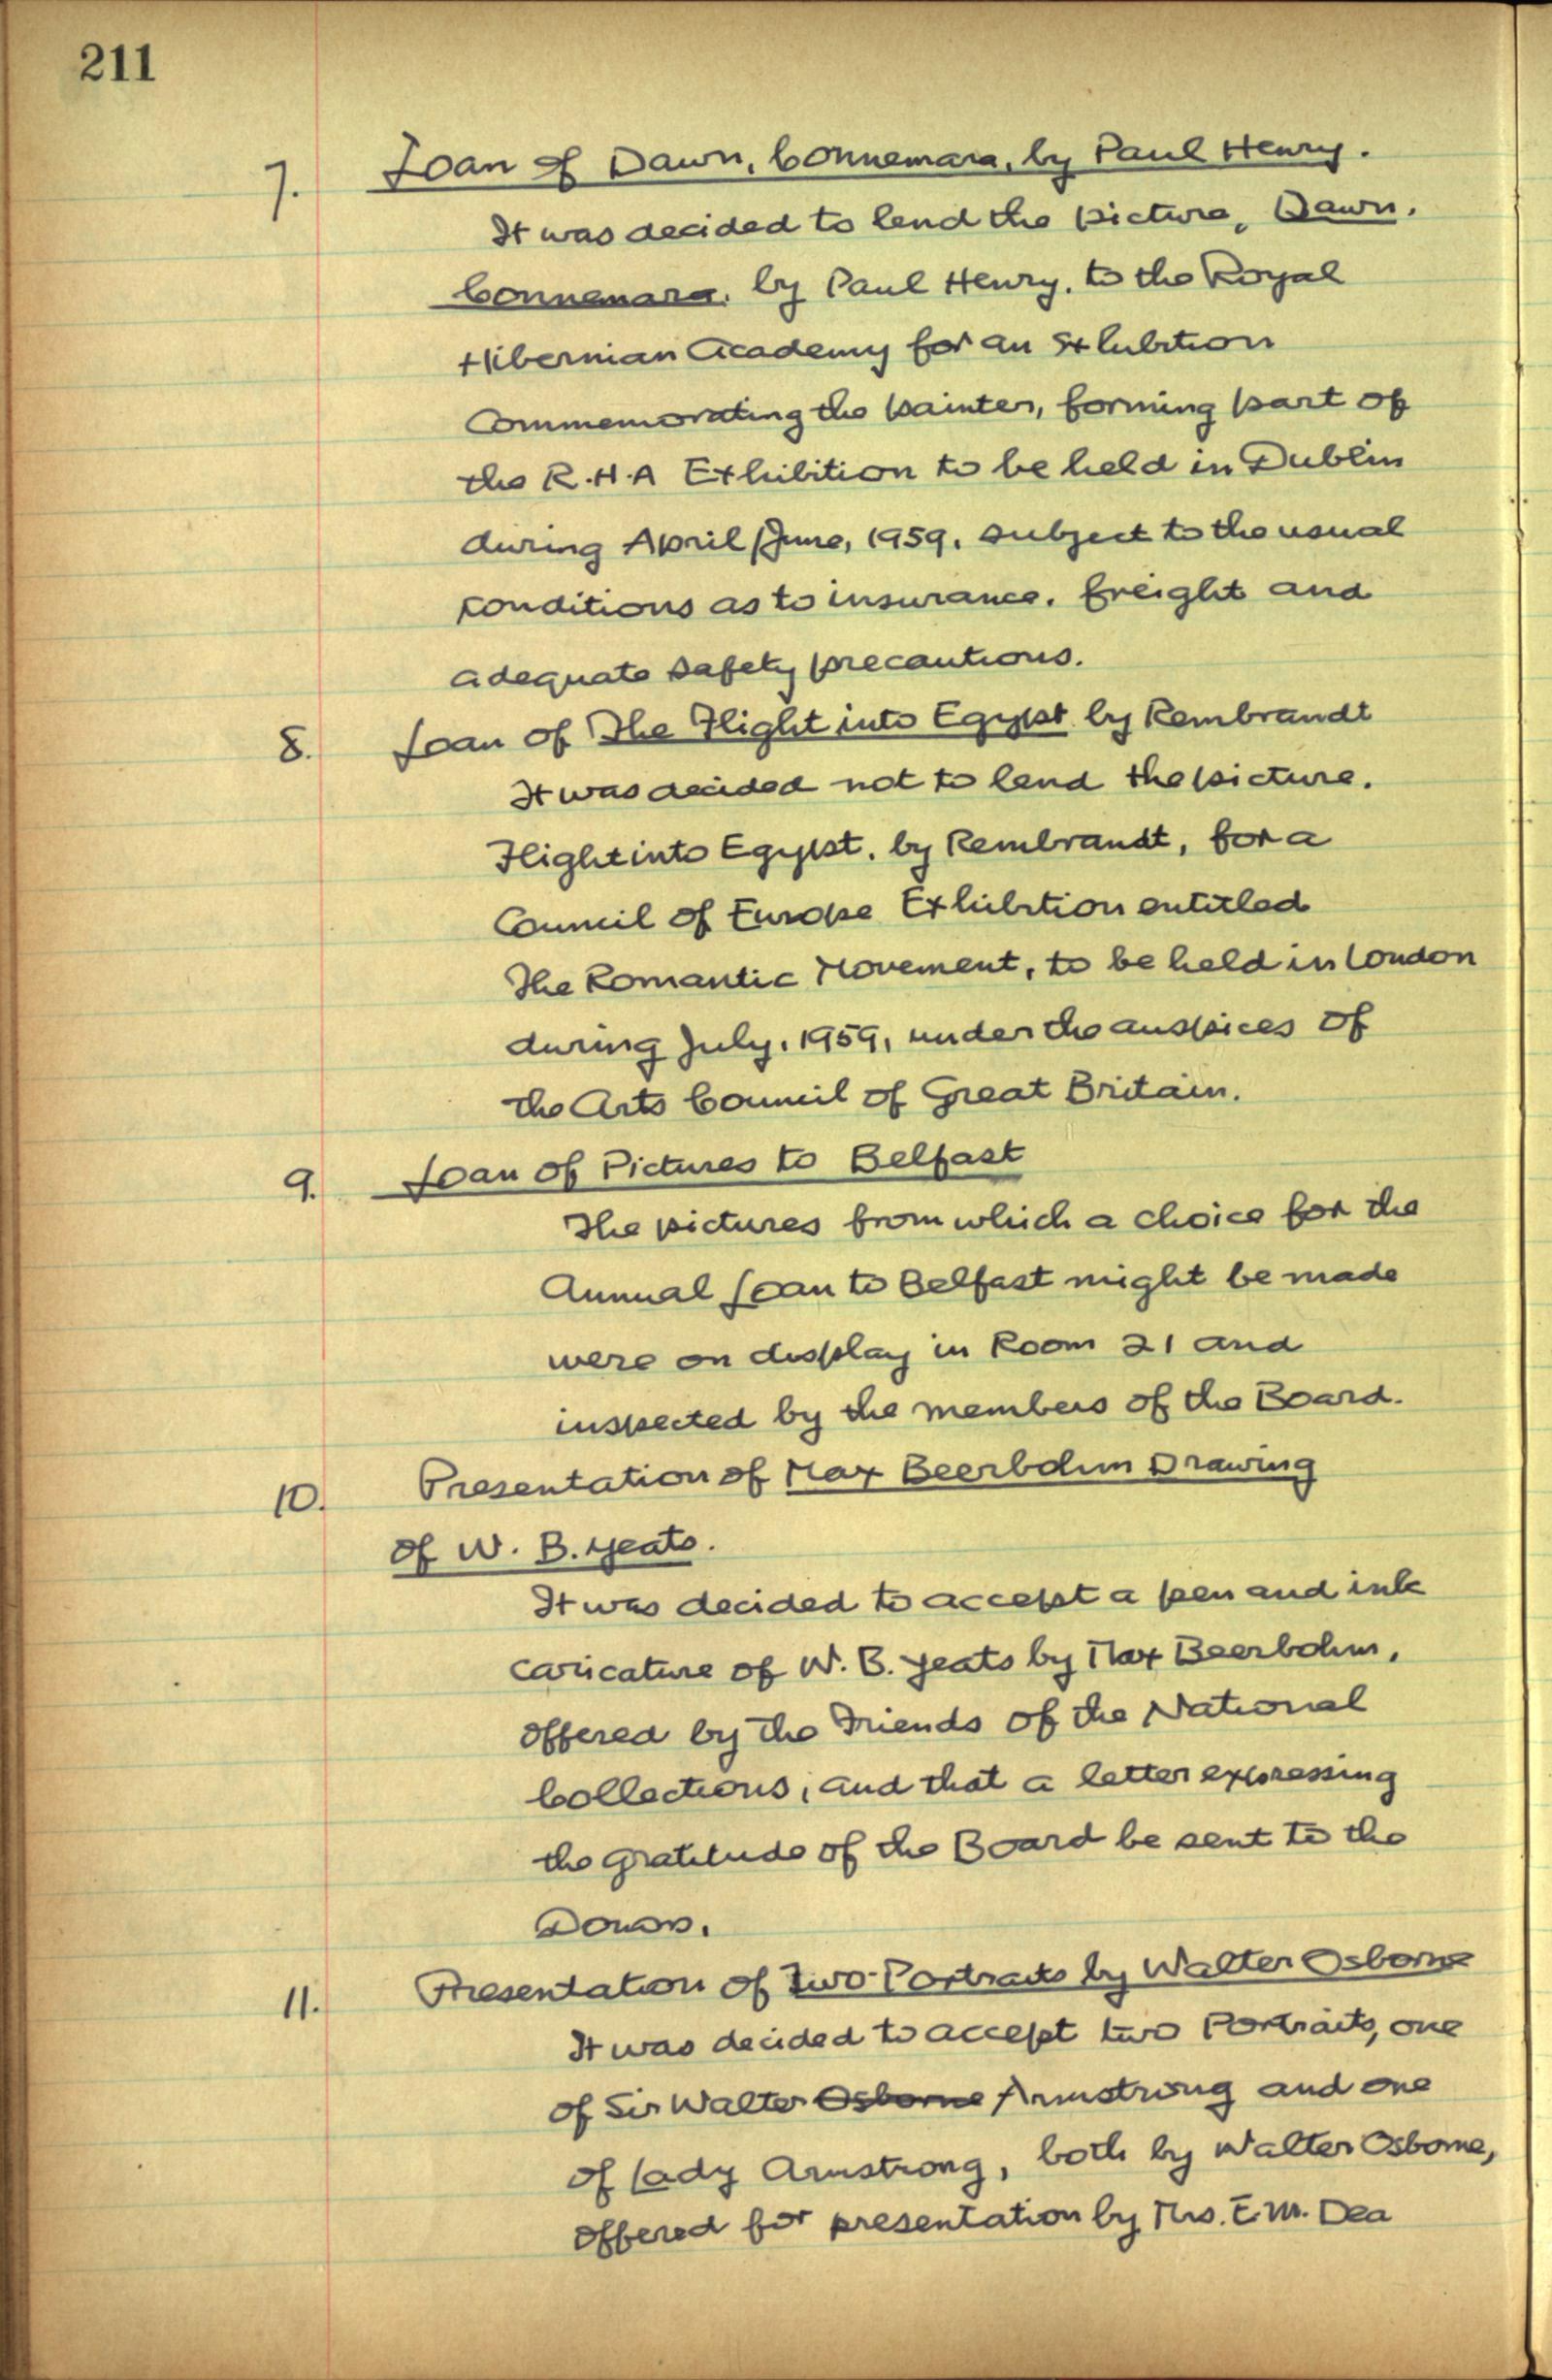 211
7. Loan of Dawn, Connemara, by Paul Henry.
It was decided to lend the picture, Dawn,
Connemara, by Paul Henry, to the Royal
Hibernian Academy for an Exhibition
Commemorating the painter, forming part of
the R.H.A Exhibition to be held in Dublin
during April/June, 1959, subject to the usual
conditions as to insurance, freight and
adequate safety precautions.
8. Loan of The Flight into Egypt by Rembrandt
It was decided not to lend the picture,
Flight into Egypt, by Rembrandt, for a
Council of Europe Exhibition entitled
The Romantic Movement, to be held in London
during July, 1959, under the auspices of
the Arts Council of Great Britain.
9. Loan of Pictures to Belfast
The pictures from which a choice for the
Annual Loan to Belfast might be made
were on display in Room 21 and
inspected by the members of the Board.
10. Presentation of Max Beerbohm Drawing
of W. B. Yeats.
It was decided to accept a pen and ink
caricature of W. B. Yeats by Max Beerbohm,
offered by the Friends of the National
Collections, and that a letter expressing
the gratitude of the Board be sent to the
Donors.
11. Presentation of Two Portraits by Walter Osborne
It was decided to accept two Portraits, one
of Sir Walter Osborne Armstrong and one
of Lady Armstrong, both by Walter Osborne,
offered for presentation by Mrs. E.M. Dea